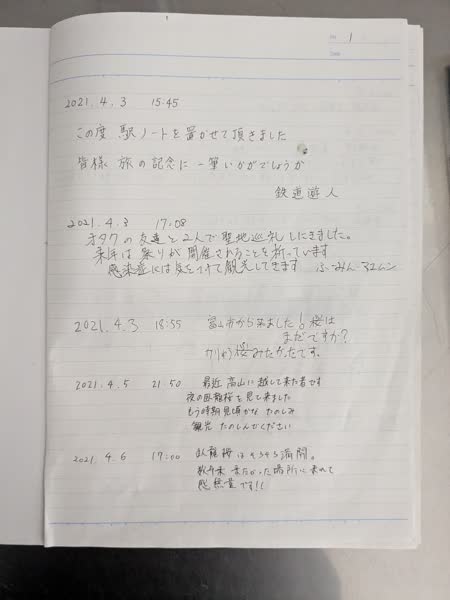 No. 1
Date
2021.4.3 15:45
この度 駅ノートを置かせて頂きました
皆様 旅の記念に 一筆いかがでしょうか
鉄道遊人
2021.4.3 17:08
オタクの友達と2人で聖地巡礼しにきました。
来年は祭りが開催されることを祈っています
感染症には気をつけて観光してきます ふーみん
2021.4.3 18:55 富山市から来ました!桜は
まだですか?
桜みたかったです。
2021.4.5 21:50 最近高山に越して来た者です
夜の臥龍桜を見て来ました
もう時期見頃かな たのしみ
観光 たのしんでください
2021.4.6 17:00 臥龍桜はそろそろ満開。
数年来 来たかった場所に来れて
感無量です!!